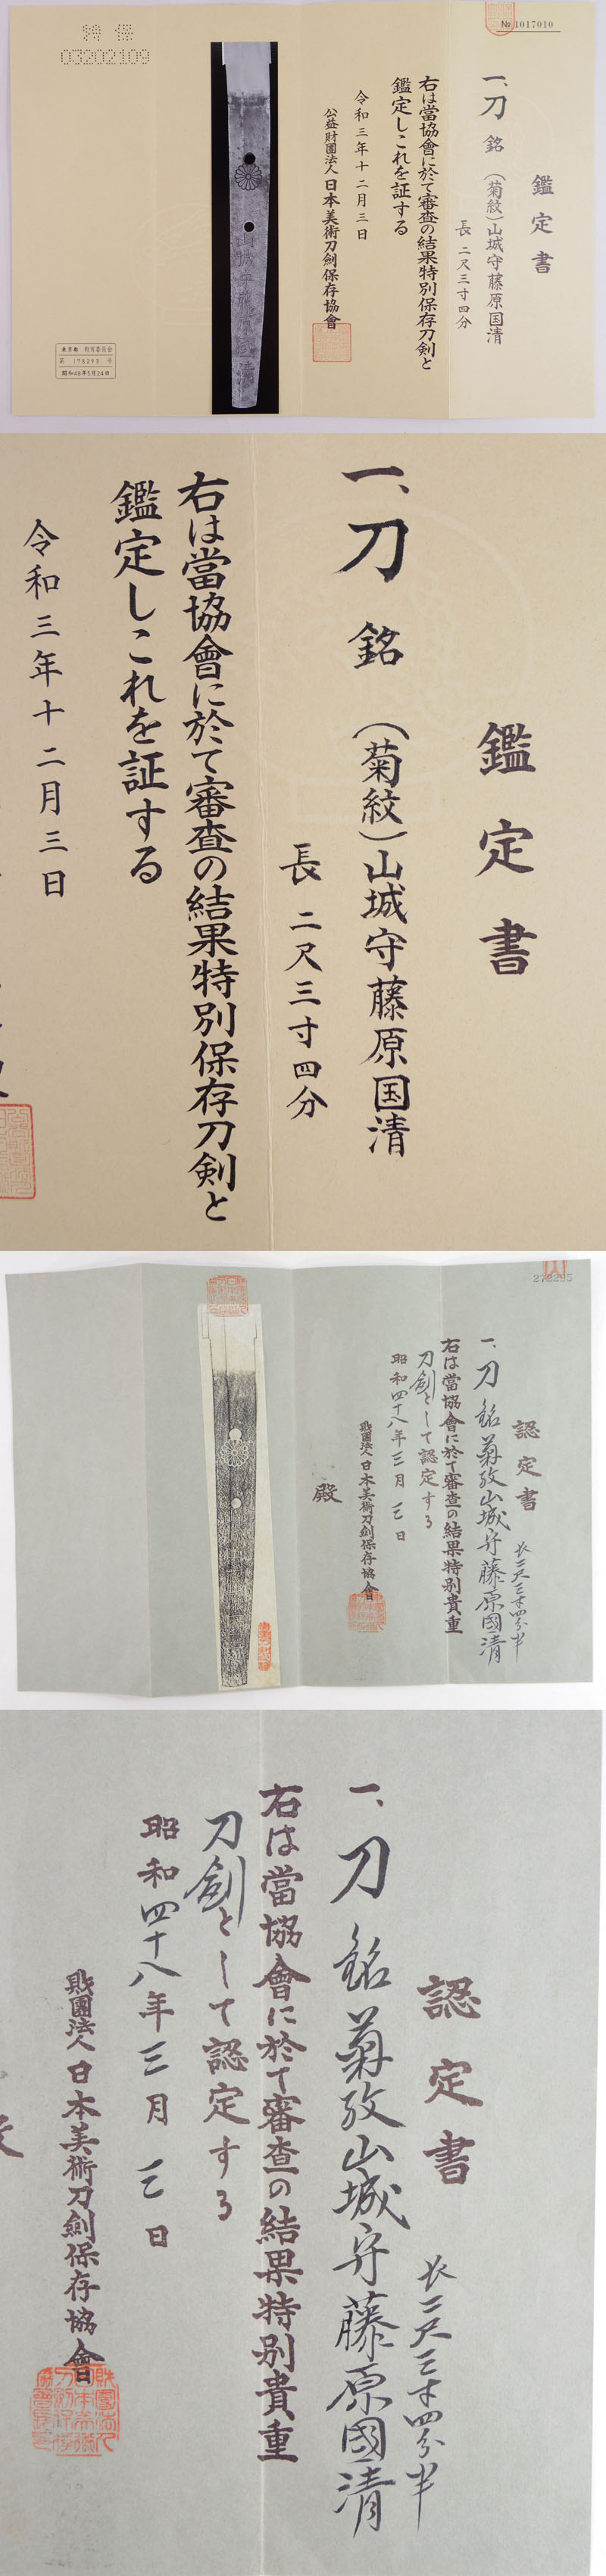 №1017010
鑑定書
一、刀 銘 (菊紋)山城守藤原国清
長 二尺三寸四分
右は當協會に於て審査の結果特別保存刀剣と
鑑定しこれを証する
令和三年十二月三日
公益財團法人 日本美術刀劍保存協會
特保
03202109
東京都 教育委員会
第 178293 号
昭和48年5月24日
鑑定書
一、刀 銘 (菊紋)山城守藤原国清
長 二尺三寸四分
右は當協會に於て審査の結果特別保存刀剣と
鑑定しこれを証する
令和三年十二月三日
認定書
長二尺三寸四分半
一、刀 銘 菊紋山城守藤原國清
右は當協會に於て審査の結果特別貴重
刀劍として認定する
昭和四十八年三月三日
財團法人 日本美術刀劍保存協會
殿
認定書
長二尺三寸四分半
一、刀 銘 菊紋山城守藤原國清
右は當協會に於て審査の結果特別貴重
刀劍として認定する
昭和四十八年三月三日
財團法人 日本美術刀劍保存協會